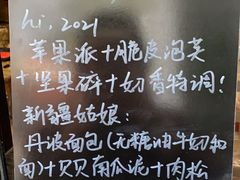 hi, 2021
苹果派+脆皮泡芙
+坚果碎+奶香特调!
新疆姑娘:
丹波面包(无糖油牛奶和
面)+贝贝南瓜泥+肉松